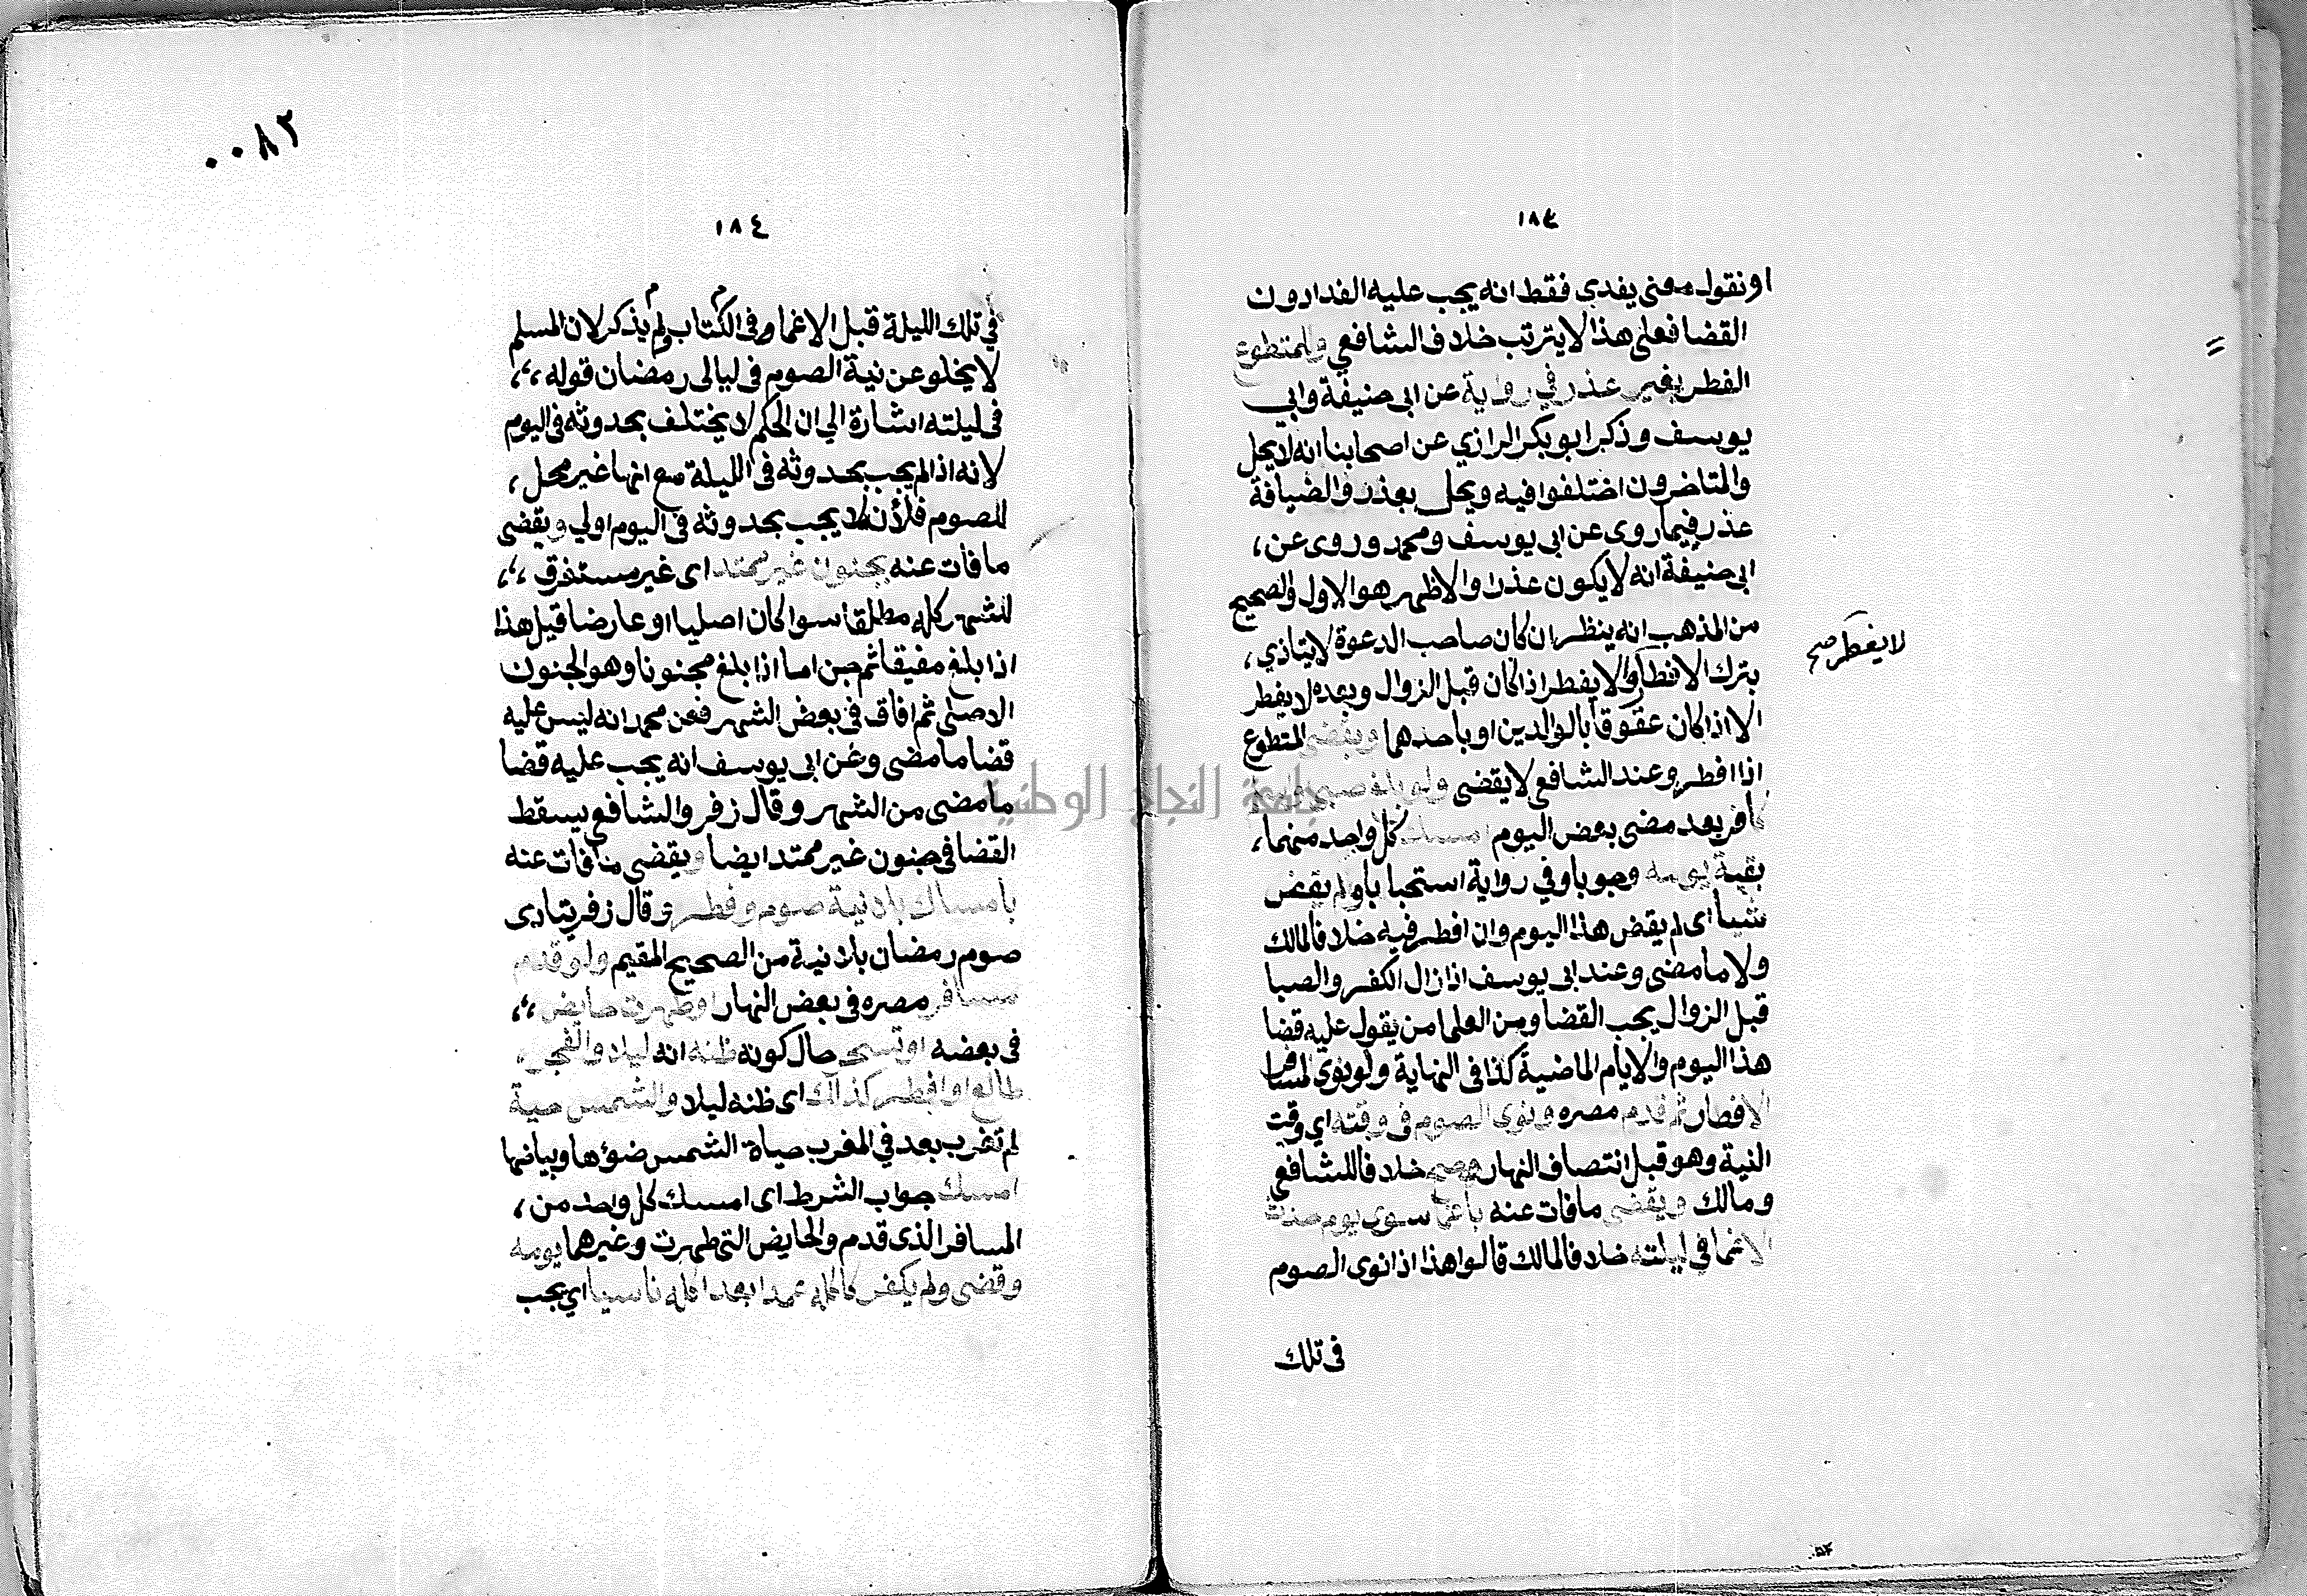 ١٨٣
او نقول معنى يفدى فقط انه يجب عليه الفدا دون
القضا فعلى هذا لا يترتب خلاف الشافعي وللمتطوع
الفطر بغير عذر في رواية عن ابى حنيفة وابي
يوسف وذكر ابو بكر الرازي عن اصحابنا انه لا يحل
والمتاخرون اختلفوا فيه ويحل بعذر والضيافة
عذر فيما روى عن ابى يوسف ومحمد وروى عن ،
ابى حنيفة انه لا يكون عذرا والاظهر هو الاول والصحيح
من المذهب انه ينظر ان كان صاحب الدعوة لا يتاذي ،
بترك الافطار والا يفطر اذا كان قبل الزوال وبعده لا يفطر
لا يفطر صح
الا اذا كان عقوقا بالوالدين او باحدهما ويقضى المتطوع
اذا افطر وعند الشافعي لا يقضى ولو بلغ صبى واسلم
كافر بعد مضى بعض اليوم امسك كل واحد منهما ،
بقية يومه وجوبا وفي رواية استحبابا ولم يقض
شيا اى لم يقض هذا اليوم وان افطر فيه خلافا لمالك
ولا ما مضى وعند ابى يوسف اذا زال الكفر والصبا
قبل الزوال يجب القضا ومن العلما من يقول عليه قضا
هذا اليوم والايام الماضية كذا فى النهاية ولو نوى المسافر
الافطار ثم قدم مصره ونوى الصوم فى وقته اي وقت
النية وهو قبل انتصاف النهار صح خلافا للشافعي
ومالك ويقضى ما فات عنه باغما سوى يوم حدث
الاغما في ليلته خلافا لمالك قالوا هذا اذا نوى الصوم
فى تلك
٠٠٨٢
١٨٤
في تلك الليلة قبل الاغما وفى الكتاب لم يذكر لان المسلم
لا يخلو عن نية الصوم فى ليالى رمضان قوله ،،،
فى ليلته اشارة الي ان الحكم لا يختلف بحدوثه فى اليوم
لانه اذا لم يجب بحدوثه فى الليلة مع انها غير محل ،
للصوم فلأن لا يجب بحدوثه فى اليوم اولي ويقضى
ما فات عنه بجنون غير ممتد اى غير مستغرق ،،،
للشهر كله مطلقا سوا كان اصليا او عارضا قيل هذا
اذا بلغ مفيقا ثم جن اما اذا بلغ مجنونا وهو الجنون
الاصلى ثم افاق فى بعض الشهر فعن محمد انه ليس عليه
قضا ما مضى وعن ابى يوسف انه يجب عليه قضا
ما مضى من الشهر وقال زفر والشافعي يسقط
القضا فى جنون غير ممتد ايضا ويقضى ما فات عنه
بامساك بلا نية صوم وفطر وقال زفر يتادى
صوم رمضان بلا نية من الصحيح المقيم ولو قدم
مسافر مصره فى بعض النهار او طهرت حايض ،،،
فى بعضه او تسحر حال كونه ظنه انه ليلا والفجر
طالع او افطر كذلك اى ظنه ليلا والشمس حية
لم تغرب بعد في المغرب حياة الشمس ضوؤها وبيانها
امسك جواب الشرط اى امسك كل واحد من ،
المسافر الذى قدم والحايض التى طهرت وغيرهما يومه
وقضى ولم يكفر كاكله عمدا بعد اكله ناسيا اي يجب
جامعة النجاح الوطنية